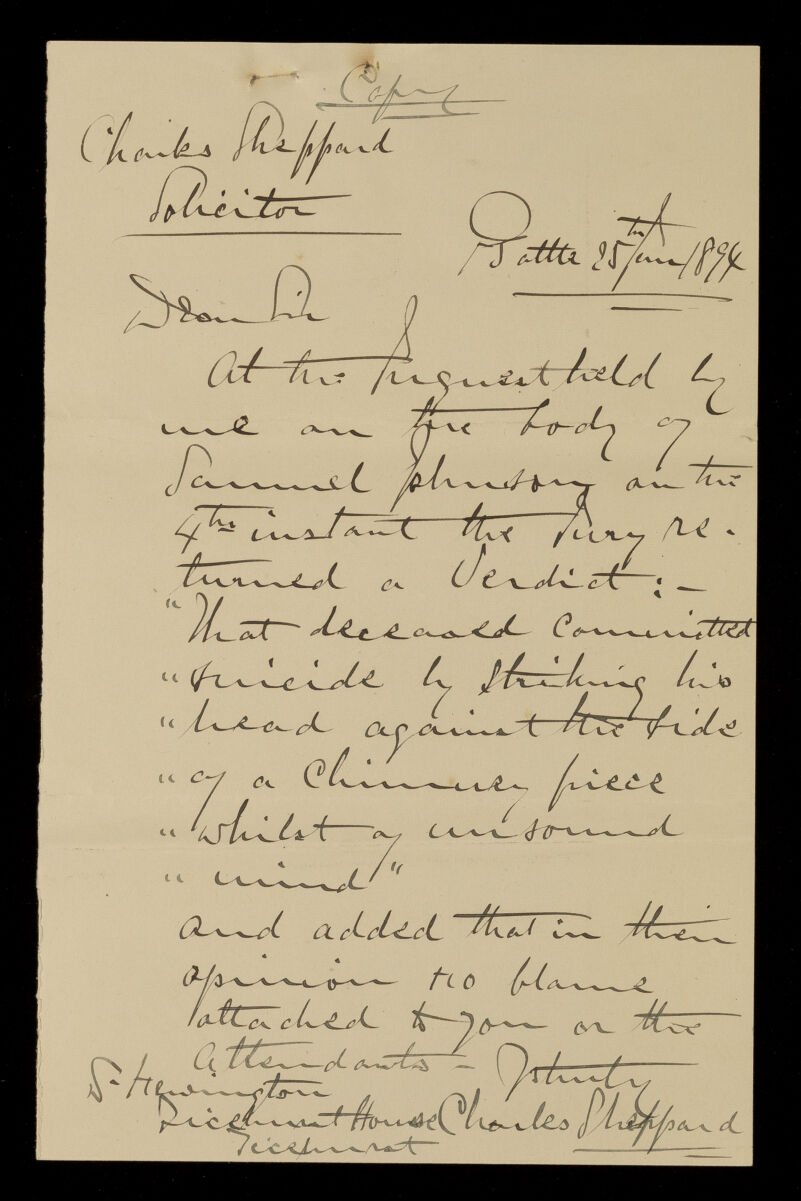 Copy
Charles Sheppard
Solicitor
Battle 25th Jany 1894
Dear Sir
At the Inquest held by
me on the body of
Samuel Johnson on the
4th instant the Jury re-
turned a Verdict:-
"That deceased committed
"suicide by striking his
"head against the side
"of a Chimney piece
"whilst of unsound
"mind"
and added that in their
opinion no blame
attached to you or the
Attendants - Yrs truly
Dr Newington
Ticehurst House Charles Sheppard
Ticehurst